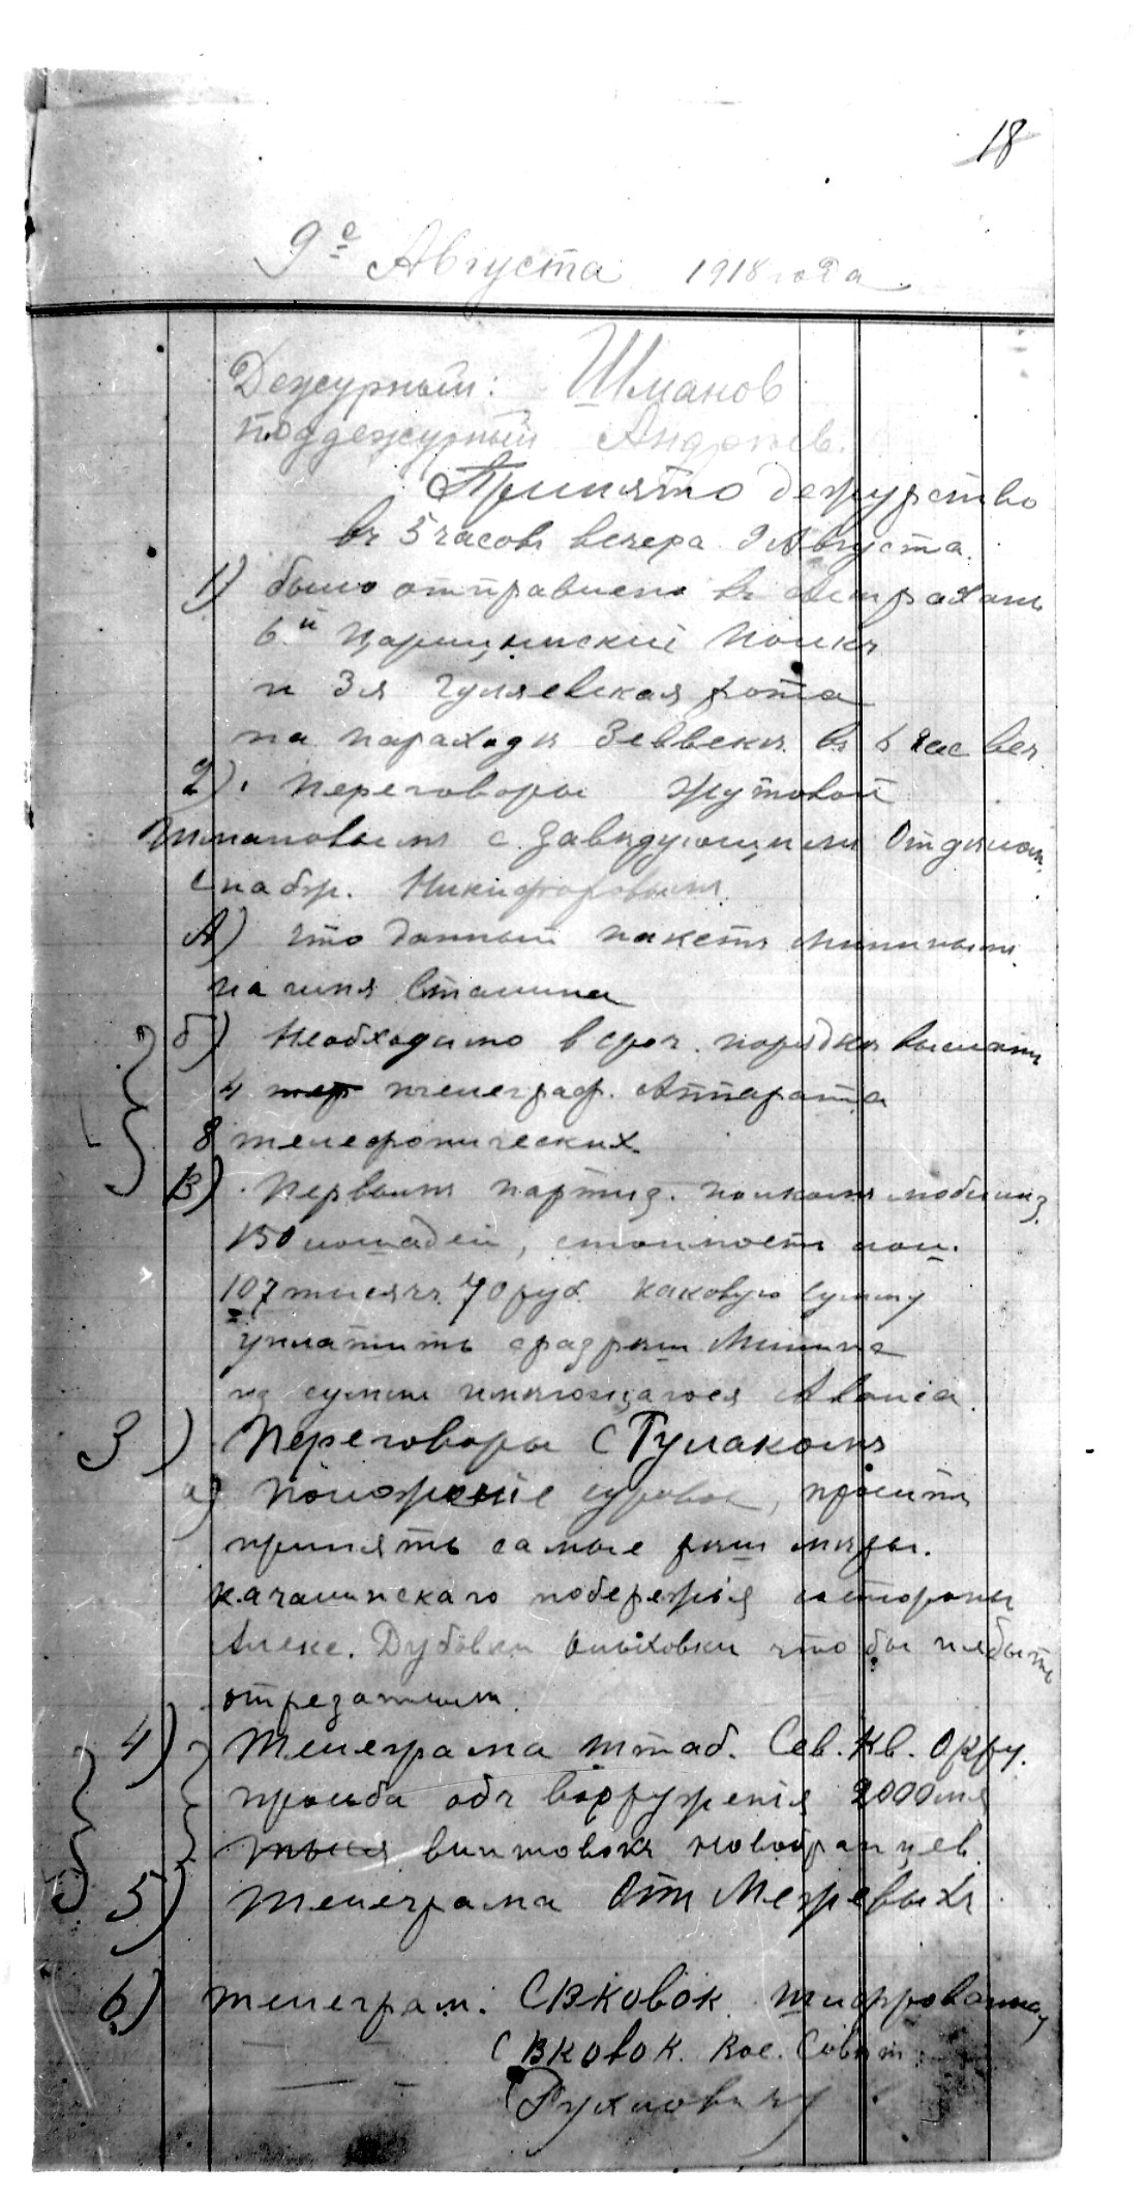 18
9е Августа 1918 года
Дежурный: Шманов
Поддежурный Андреев.
Принято дежурство
въ 5 часовъ вечера 9 Августа.
1) было отправлено въ Астрахань
6й Царицынский Полкъ
и 3я Гуляевская рота
на пароходѣ Зевеке въ 6 час веч.
2) Переговоры Жутовой
Шмановымъ с Завѣдующимъ Отдѣлом
снабж. Никифоровымъ
А) что данный пакетъ Мининымъ
на имя Сталина
б) Необходимо в сроч. порядкѣ выслать
4 телеграф. Аппарата
8 телефонических.
В) Первымъ партиз. полкомъ мобилиз.
150 лошадей, стоимость лош.
107 тысячъ 70 руб. каковую сумму
уплатить Минина
из суммы имеющагося Аванса.
3) Переговоры с Тулакомъ
а) положеніе суровое, проситъ
принять самые реш меры.
Качалинскаго побережья со стороны
Алекс. Дубовки Ольховки что бы не быть
отрезанным.
4) Телеграма штаб. Сев. Кв. Окру.
прозьба объ вооружения 2000
винтовокъ новобранцев.
5) Телеграма Отъ Межевыхъ
6) телеграм. СВКовок шифрованная
— — СВКовок. Вое. Совѣт
— — Рухимовичу